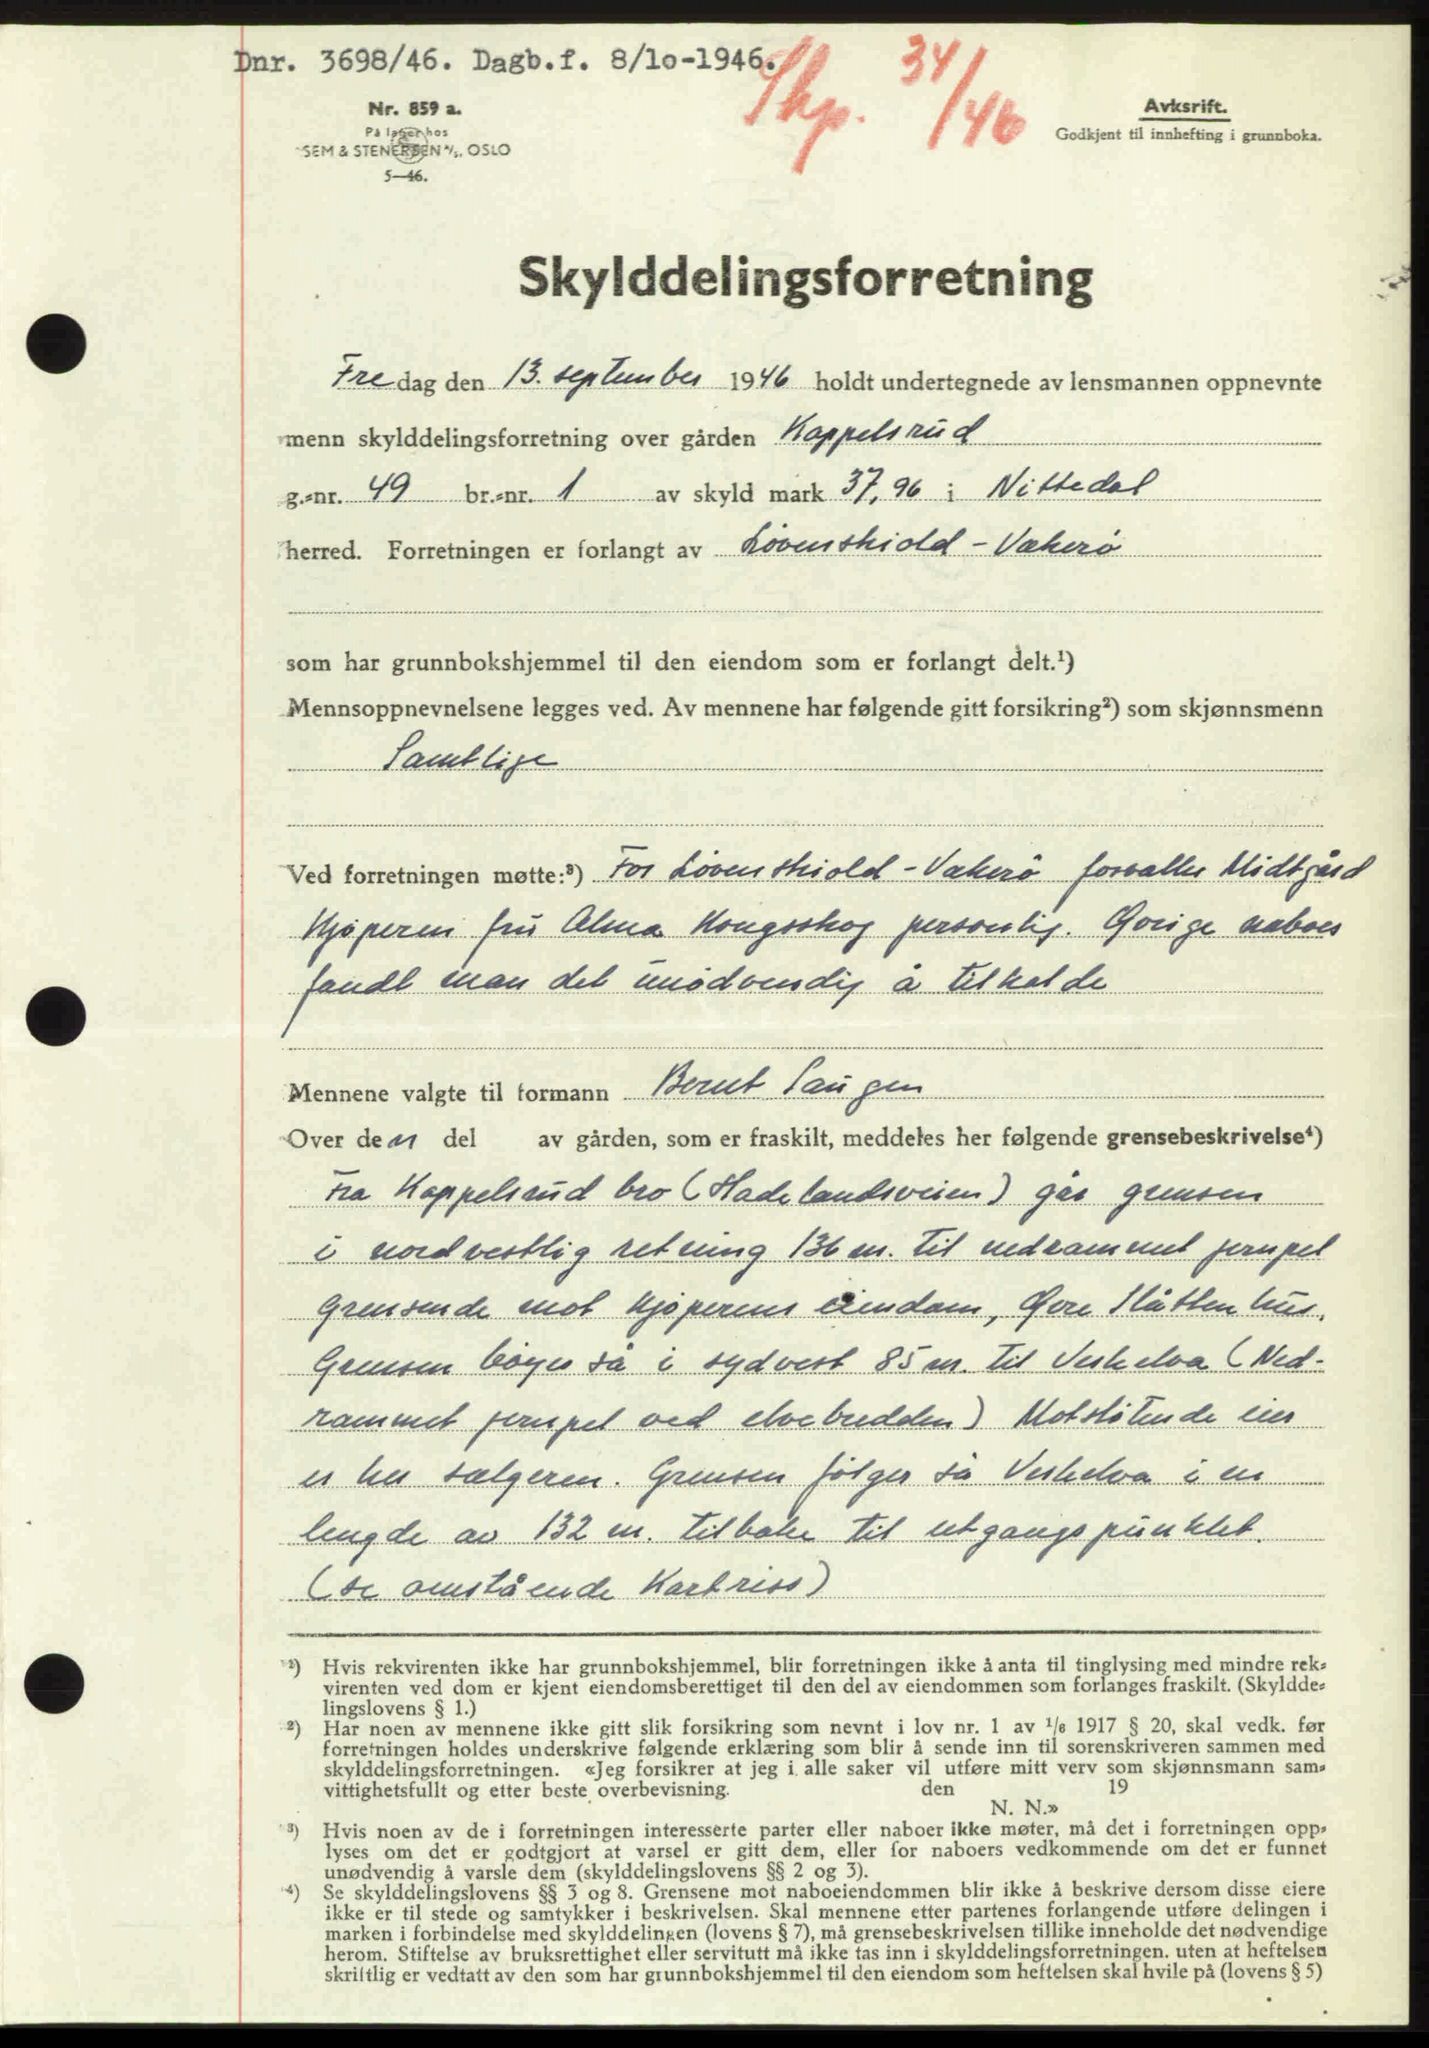 Dnr. 3698/46. Dagb.f. 8/10-1946.
Skp. 34/46
Nr. 859 a.
På lager hos
SEM & STENERSEN A/S, OSLO
5—46.
Avksrift.
Godkjent til innhefting i grunnboka.
Skylddelingsforretning
Fredag den 13. september 1946 holdt undertegnede av lensmannen oppnevnte
menn skylddelingsforretning over gården Kappelsrud
g.-nr. 49 br.-nr. 1 av skyld mark 37,96 i Nittedal
herred. Forretningen er forlangt av Løvenskiold - Vækerø
som har grunnbokshjemmel til den eiendom som er forlangt delt.¹)
Mennsoppnevnelsene legges ved. Av mennene har følgende gitt forsikring²) som skjønnsmenn
Samtlige
Ved forretningen møtte:³) For Løvenskiold - Vækerö forvalter Midtgård
Kjøperen fru Alma Kongsskog personlig. Øvrige naboer
fandt man det unødvendig å tilkalde
Mennene valgte til formann Bernt Haugen
Over den del av gården, som er fraskilt, meddeles her følgende grensebeskrivelse⁴)
Fra Kappelsrud bro (Hadelandsveien) går grensen
i nordvestlig retning 136 m. til nedrammet jernpel
Grensende mot Kjøperens eiendom, Øvre Slåttenhus.
Grensen bøyes så i sydvest 85 m. til Verkelva (Ned-
rammet jernpel ved elvebredden) Motstøtende eier
er her sælgeren. Grensen følger så Verkelva i en
lengde av 132 m. tilbake til utgangspunktet.
(se omstående Kartriss)
¹) Hvis rekvirenten ikke har grunnbokshjemmel, blir forretningen ikke å anta til tinglysing med mindre rek-
virenten ved dom er kjent eiendomsberettiget til den del av eiendommen som forlanges fraskilt. (Skyldde-
lingslovens § 1.)
²) Har noen av mennene ikke gitt slik forsikring som nevnt i lov nr. 1 av 1/6 1917 § 20, skal vedk. før
forretningen holdes underskrive følgende erklæring som blir å sende inn til sorenskriveren sammen med
skylddelingsforretningen. «Jeg forsikrer at jeg i alle saker vil utføre mitt verv som skjønnsmann sam-
vittighetsfullt og etter beste overbevisning. den 19
N. N.»
³) Hvis noen av de i forretningen interesserte parter eller naboer ikke møter, må det i forretningen opp-
lyses om det er godtgjort at varsel er gitt dem, eller for naboers vedkommende om det er funnet
unødvendig å varsle dem (skylddelingslovens §§ 2 og 3).
⁴) Se skylddelingslovens §§ 3 og 8. Grensene mot naboeiendommen blir ikke å beskrive dersom disse eiere
ikke er til stede og samtykker i beskrivelsen. Skal mennene etter partenes forlangende utføre delingen i
marken i forbindelse med skylddelingen (lovens § 7), må grensebeskrivelsen tillike inneholde det nødvendige
herom. Stiftelse av bruksrettighet eller servitutt må ikke tas inn i skylddelingsforretningen, uten at heftelsen
skriftlig er vedtatt av den som har grunnbokshjemmel til den eiendom som heftelsen skal hvile på (lovens § 5)